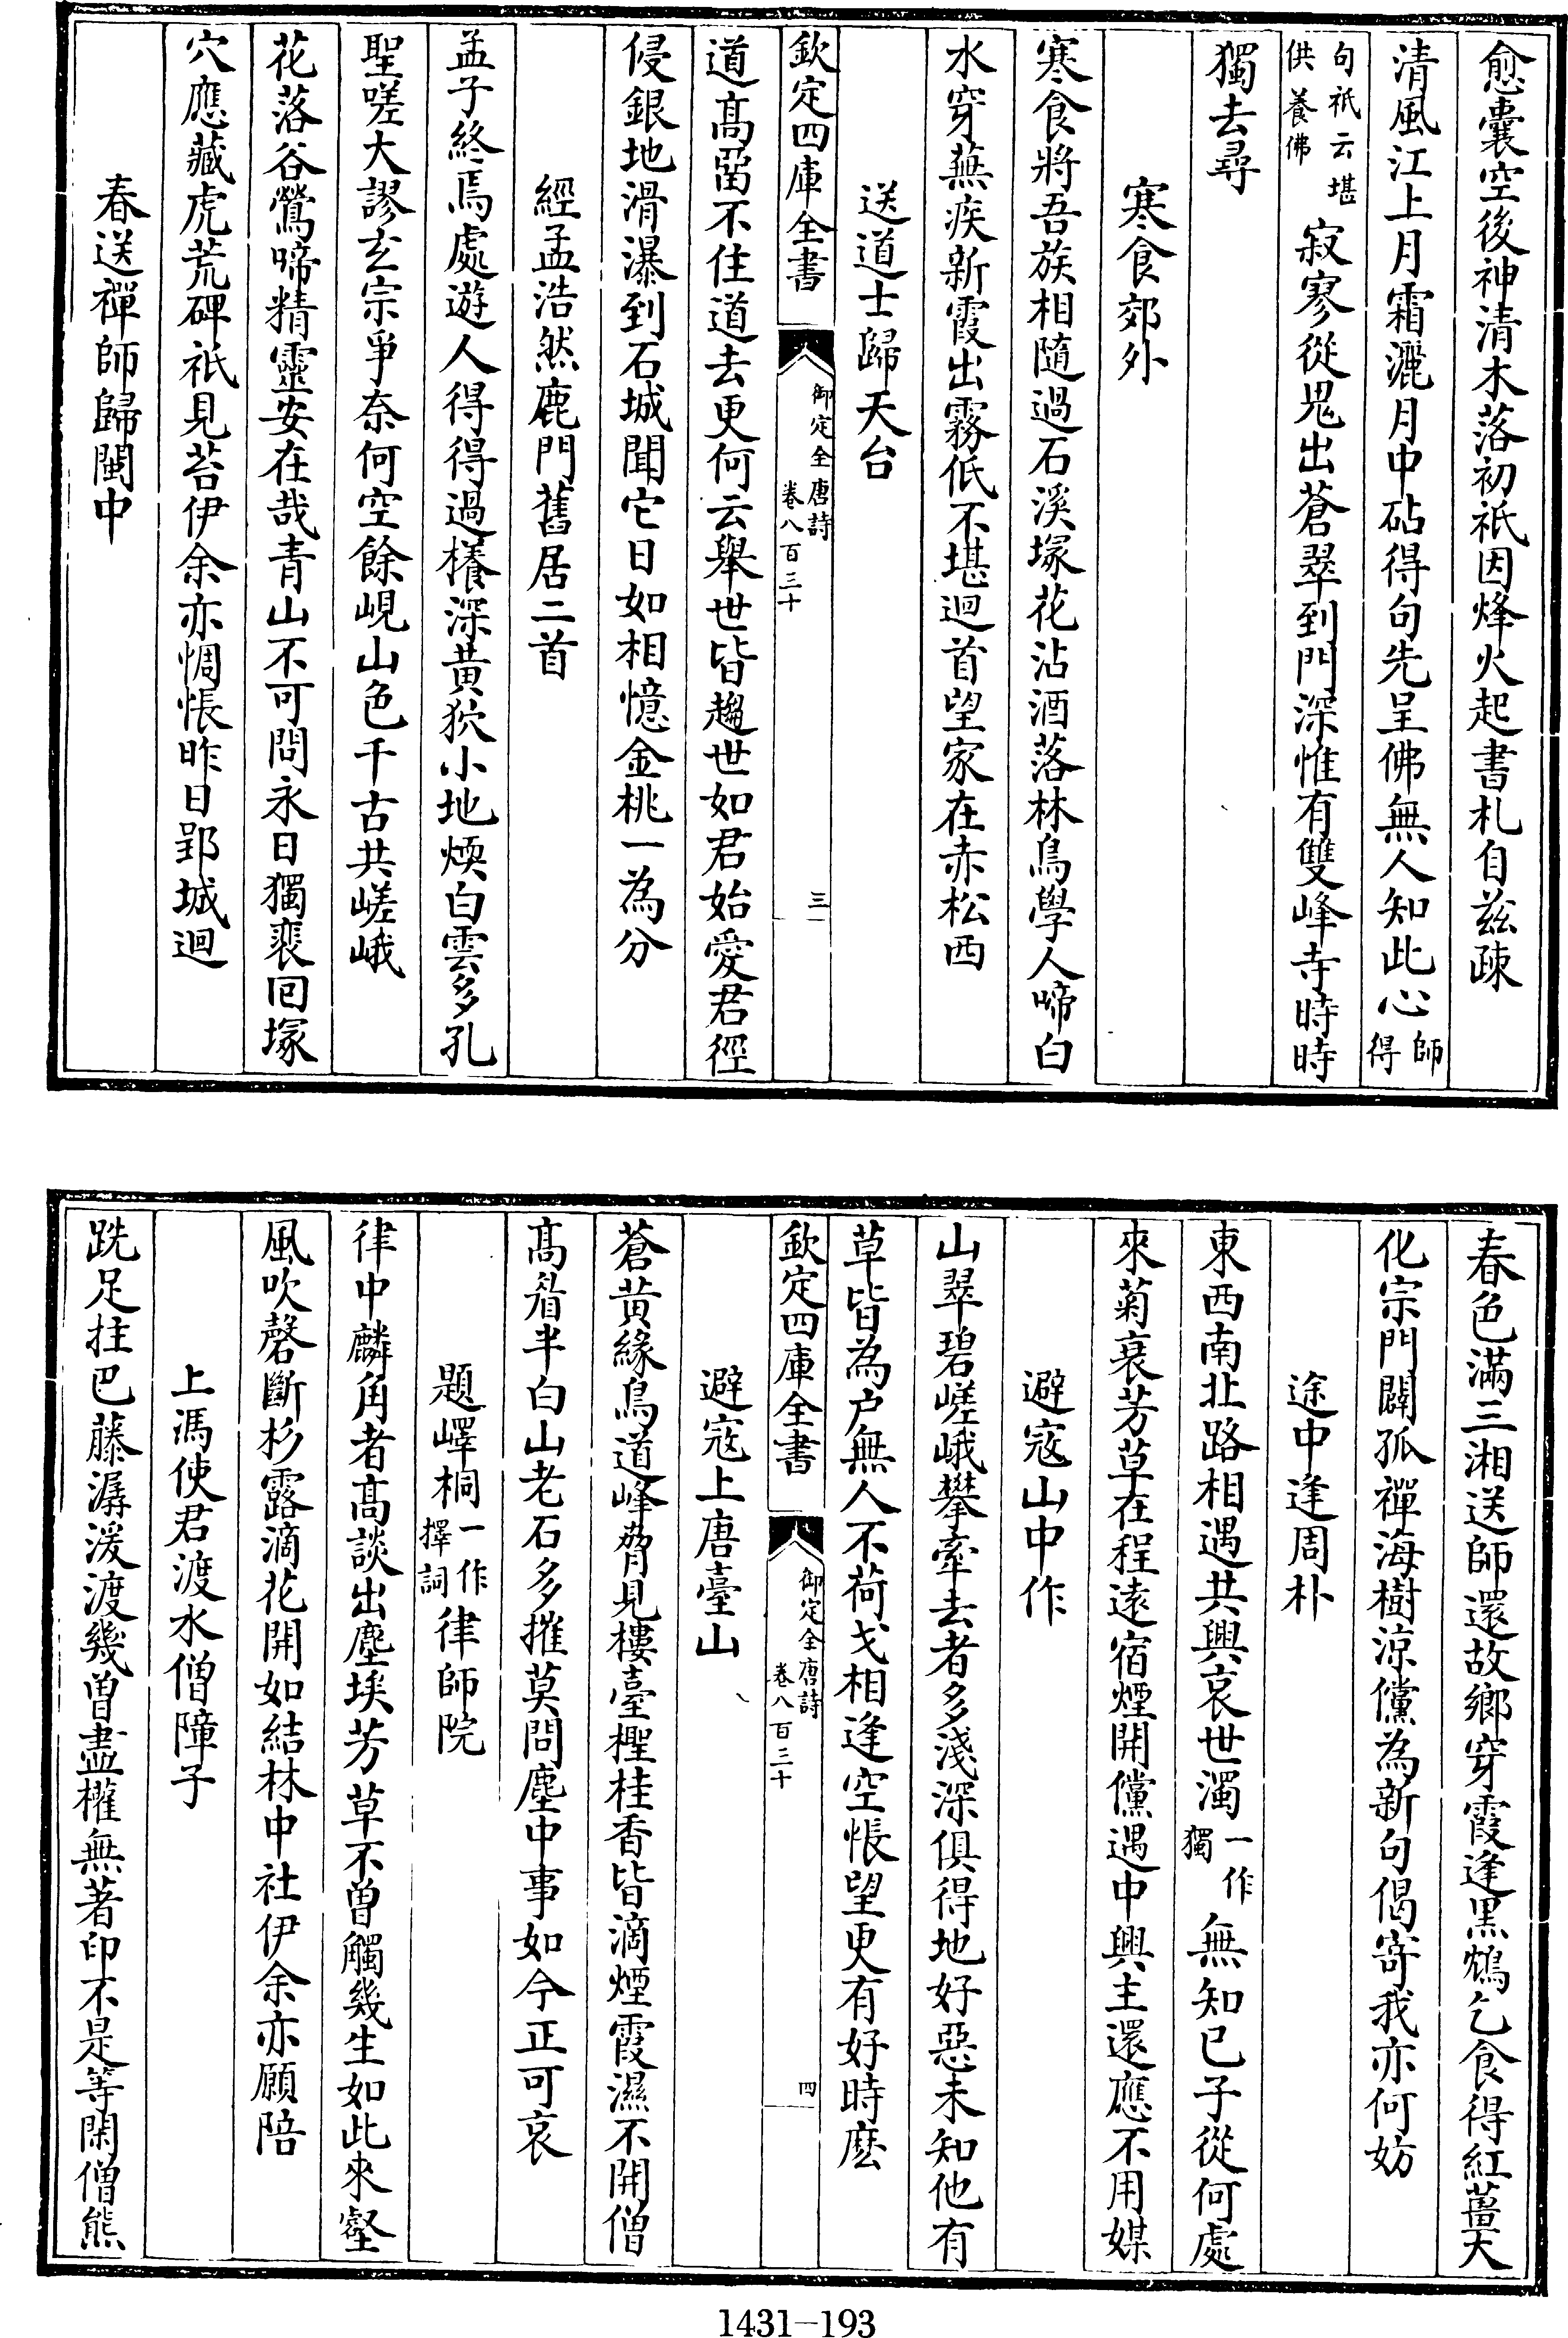 愈囊空後神清木落初祇因烽火起書札自兹疎
清風江上月霜灑月中砧得句先呈佛無人知此心師得
句祇云堪供養佛寂寥從鬼出蒼翠到門深惟有雙峰寺時時
獨去尋
寒食郊外
寒食將吾族相隨過石溪塚花沾酒落林鳥學人啼白
水穿蕪疾新霞出霧低不堪迴首望家在赤松西
送道士歸天台
欽定四庫全書
御定全唐詩
卷八百三十
三
道高留不住道去更何云舉世皆趨世如君始愛君徑
侵銀地滑瀑到石城聞它日如相憶金桃一為分
經孟浩然鹿門舊居二首
孟子終焉處遊人得得過櫳深黄狖小地煗白雲多孔
聖嗟大謬玄宗爭奈何空餘峴山色千古共嵯峨
花落谷鶯啼精靈安在哉青山不可問永日獨裴回塚
穴應藏虎荒碑祇見苔伊余亦惆悵昨日郢城迴
春送禪師歸閩中
春色滿三湘送師還故鄉穿霞逢黒鴆乞食得紅薑大
化宗門闢孤禪海樹涼儻為新句偈寄我亦何妨
途中逢周朴
東西南北路相遇共興哀世濁一作獨無知已子從何處
來菊衰芳草在程逺宿煙開儻遇中興主還應不用媒
避寇山中作
山翠碧嵯峨攀牽去者多淺深俱得地好惡未知他有
草皆為户無人不荷戈相逢空悵望更有好時麽
欽定四庫全書
御定全唐詩
卷八百三十
四
避寇上唐臺山
蒼黄緣鳥道峰脅見樓臺檉桂香皆滴煙霞濕不開僧
高眉半白山老石多摧莫問塵中事如今正可哀
題嶧桐一作擇詞律師院
律中麟角者高談出塵埃芳草不曽觸幾生如此來壑
風吹磬斷杉露滴花開如結林中社伊余亦願陪
上馮使君渡水僧障子
跣足拄巴藤潺湲渡幾曽盡權無著印不是等閑僧熊
1431-193